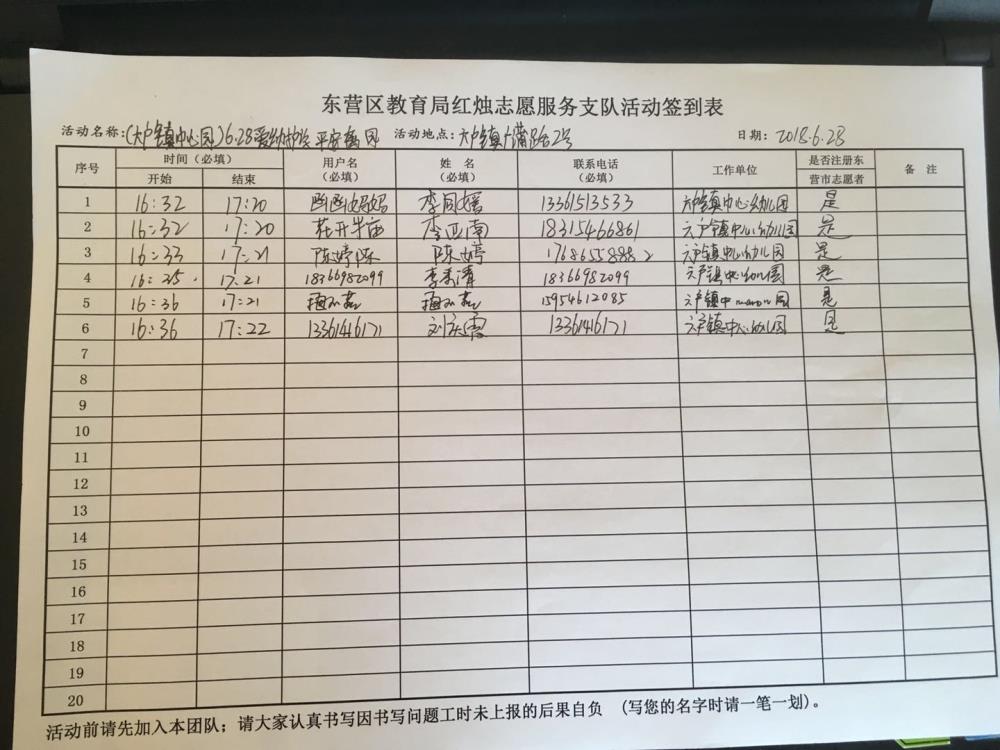 东营区教育局红烛志愿服务支队活动签到表
活动名称:(六户镇中心园)6.28爱幼护学 平安离园 活动地点:六户镇广蒲路2号 日期: 2018.6.28
序号 时间(必填) 用户名(必填) 姓 名(必填) 联系电话(必填) 工作单位 是否注册东营市志愿者 备 注
开始 结束
1 16:32 17:20 李同媛 13361513533 六户镇中心幼儿园 是
2 16:32 17:20 花开半亩 李亚南 18315466861 六户镇中心幼儿园 是
3 16:33 17:21 陈婷陈 陈婷 17686558882 六户镇中心幼儿园 是
4 16:35 17:21 18366982099 李秀清 18366982099 六户镇中心幼儿园 是
5 16:36 17:21 15954612085 六户镇中 园 是
6 16:36 17:22 13361416171 刘庆霞 13361416171 六户镇中心幼儿园 是
7
8
9
10
11
12
13
14
15
16
17
18
19
20
活动前请先加入本团队;请大家认真书写因书写问题工时未上报的后果自负 (写您的名字时请一笔一划)。